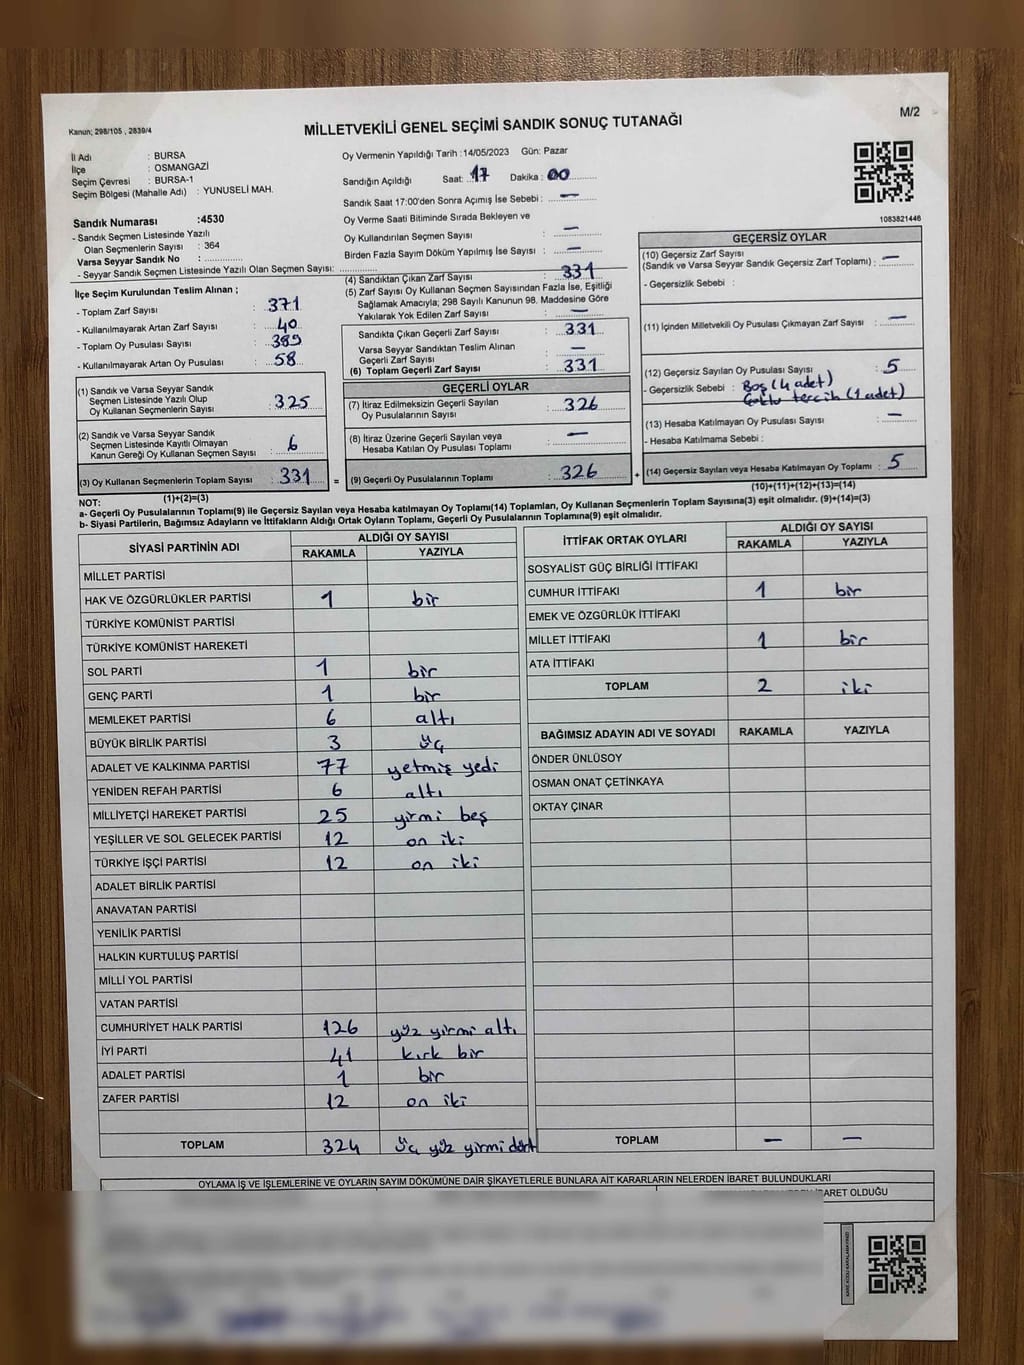 Kanun; 298/105 , 2839/4
MİLLETVEKİLİ GENEL SEÇİMİ SANDIK SONUÇ TUTANAĞI
M/2
İl Adı : BURSA
İlçe : OSMANGAZİ
Seçim Çevresi : BURSA-1
Seçim Bölgesi (Mahalle Adı) : YUNUSELİ MAH.
Sandık Numarası :4530
- Sandık Seçmen Listesinde Yazılı
Olan Seçmenlerin Sayısı : 364
Varsa Seyyar Sandık No :
- Seyyar Sandık Seçmen Listesinde Yazılı Olan Seçmen Sayısı:
İlçe Seçim Kurulundan Teslim Alınan ;
- Toplam Zarf Sayısı : 371
- Kullanılmayarak Artan Zarf Sayısı : 40
- Toplam Oy Pusulası Sayısı : 389
- Kullanılmayarak Artan Oy Pusulası : 58
(1) Sandık ve Varsa Seyyar Sandık
Seçmen Listesinde Yazılı Olup
Oy Kullanan Seçmenlerin Sayısı : 325
(2) Sandık ve Varsa Seyyar Sandık
Seçmen Listesinde Kayıtlı Olmayan
Kanun Gereği Oy Kullanan Seçmen Sayısı : 6
(3) Oy Kullanan Seçmenlerin Toplam Sayısı : 331
(1)+(2)=(3)
Oy Vermenin Yapıldığı Tarih :14/05/2023 Gün: Pazar
Sandığın Açıldığı Saat: 17 Dakika : 00
Sandık Saat 17:00'den Sonra Açımış İse Sebebi : —
Oy Verme Saati Bitiminde Sırada Bekleyen ve
Oy Kullandırılan Seçmen Sayısı : —
Birden Fazla Sayım Döküm Yapılmış İse Sayısı : —
(4) Sandıktan Çıkan Zarf Sayısı : 331
(5) Zarf Sayısı Oy Kullanan Seçmen Sayısından Fazla İse, Eşitliği
Sağlamak Amacıyla; 298 Sayılı Kanunun 98. Maddesine Göre
Yakılarak Yok Edilen Zarf Sayısı : —
Sandıkta Çıkan Geçerli Zarf Sayısı : 331
Varsa Seyyar Sandıktan Teslim Alınan
Geçerli Zarf Sayısı : —
(6) Toplam Geçerli Zarf Sayısı : 331
GEÇERLİ OYLAR
(7) İtiraz Edilmeksizin Geçerli Sayılan
Oy Pusulalarının Sayısı : 326
(8) İtiraz Üzerine Geçerli Sayılan veya
Hesaba Katılan Oy Pusulası Toplamı : —
= (9) Geçerli Oy Pusulalarının Toplamı : 326
1083821446
GEÇERSİZ OYLAR
(10) Geçersiz Zarf Sayısı
(Sandık ve Varsa Seyyar Sandık Geçersiz Zarf Toplamı) : —
- Geçersizlik Sebebi :
(11) İçinden Milletvekili Oy Pusulası Çıkmayan Zarf Sayısı : —
(12) Geçersiz Sayılan Oy Pusulası Sayısı : 5
- Geçersizlik Sebebi : Boş (4 adet)
Çoklu tercih (1 adet)
(13) Hesaba Katılmayan Oy Pusulası Sayısı : —
- Hesaba Katılmama Sebebi :
+ (14) Geçersiz Sayılan veya Hesaba Katılmayan Oy Toplamı : 5
(10)+(11)+(12)+(13)=(14)
NOT:
a- Geçerli Oy Pusulalarının Toplamı(9) ile Geçersiz Sayılan veya Hesaba katılmayan Oy Toplamı(14) Toplamları, Oy Kullanan Seçmenlerin Toplam Sayısına(3) eşit olmalıdır. (9)+(14)=(3)
b- Siyasi Partilerin, Bağımsız Adayların ve İttifakların Aldığı Ortak Oyların Toplamı, Geçerli Oy Pusulalarının Toplamına(9) eşit olmalıdır.
SİYASİ PARTİNİN ADI ALDIĞI OY SAYISI
RAKAMLA YAZIYLA
MİLLET PARTİSİ
HAK VE ÖZGÜRLÜKLER PARTİSİ 1 bir
TÜRKİYE KOMÜNİST PARTİSİ
TÜRKİYE KOMÜNİST HAREKETİ
SOL PARTİ 1 bir
GENÇ PARTİ 1 bir
MEMLEKET PARTİSİ 6 altı
BÜYÜK BİRLİK PARTİSİ 3 üç
ADALET VE KALKINMA PARTİSİ 77 yetmiş yedi
YENİDEN REFAH PARTİSİ 6 altı
MİLLİYETÇİ HAREKET PARTİSİ 25 yirmi beş
YEŞİLLER VE SOL GELECEK PARTİSİ 12 on iki
TÜRKİYE İŞÇİ PARTİSİ 12 on iki
ADALET BİRLİK PARTİSİ
ANAVATAN PARTİSİ
YENİLİK PARTİSİ
HALKIN KURTULUŞ PARTİSİ
MİLLİ YOL PARTİSİ
VATAN PARTİSİ
CUMHURİYET HALK PARTİSİ 126 yüz yirmi altı
İYİ PARTİ 41 kırk bir
ADALET PARTİSİ 1 bir
ZAFER PARTİSİ 12 on iki
TOPLAM 324 üç yüz yirmi dört
İTTİFAK ORTAK OYLARI ALDIĞI OY SAYISI
RAKAMLA YAZIYLA
SOSYALİST GÜÇ BİRLİĞİ İTTİFAKI
CUMHUR İTTİFAKI 1 bir
EMEK VE ÖZGÜRLÜK İTTİFAKI
MİLLET İTTİFAKI 1 bir
ATA İTTİFAKI
TOPLAM 2 iki
BAĞIMSIZ ADAYIN ADI VE SOYADI RAKAMLA YAZIYLA
ÖNDER ÜNLÜSOY
OSMAN ONAT ÇETİNKAYA
OKTAY ÇINAR
TOPLAM — —
OYLAMA İŞ VE İŞLEMLERİNE VE OYLARIN SAYIM DÖKÜMÜNE DAİR ŞİKAYETLERLE BUNLARA AİT KARARLARIN NELERDEN İBARET BULUNDUKLARI
İBARET OLDUĞU